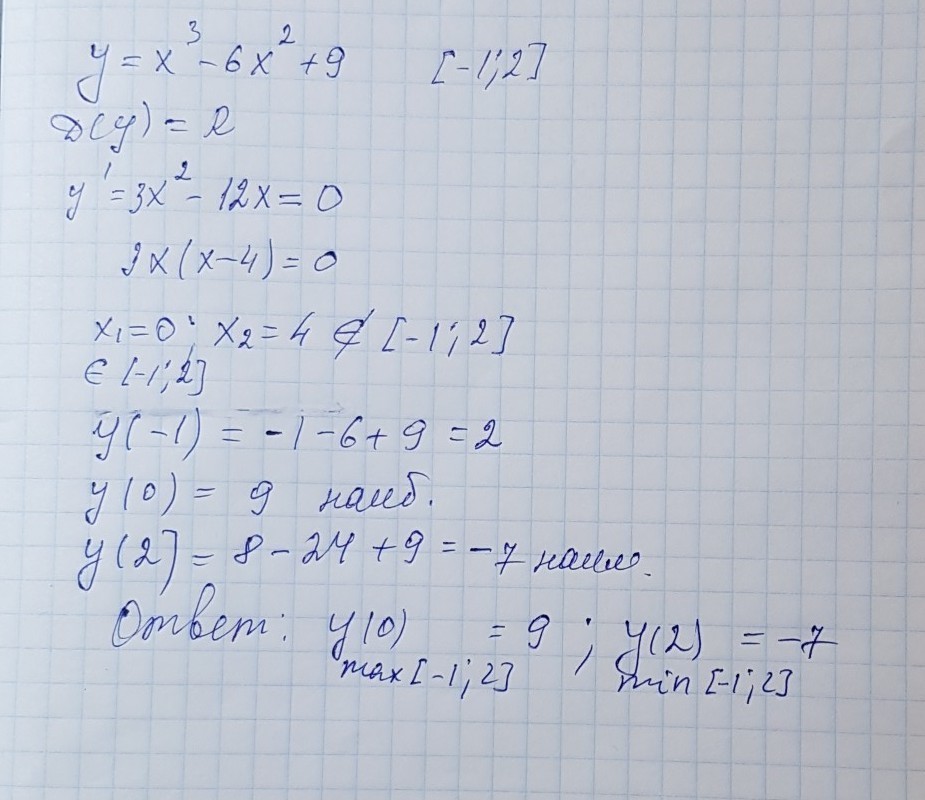 y = x³ - 6x² + 9 [-1; 2]
D(y) = R
y' = 3x² - 12x = 0
3x(x-4) = 0
x₁ = 0; x₂ = 4 ∉ [-1; 2]
∈ [-1; 2]
y(-1) = -1 - 6 + 9 = 2
y(0) = 9 наиб.
y(2] = 8 - 24 + 9 = -7 наим.
Ответ: y(0) = 9 ; y(2) = -7
max [-1; 2] min [-1; 2]